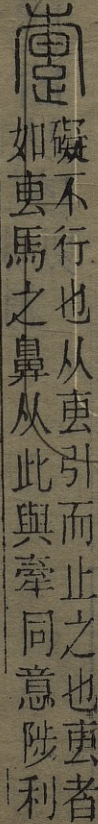 疐
礙不行也从叀引而止之也叀者
如叀馬之鼻从此與牽同意陟利